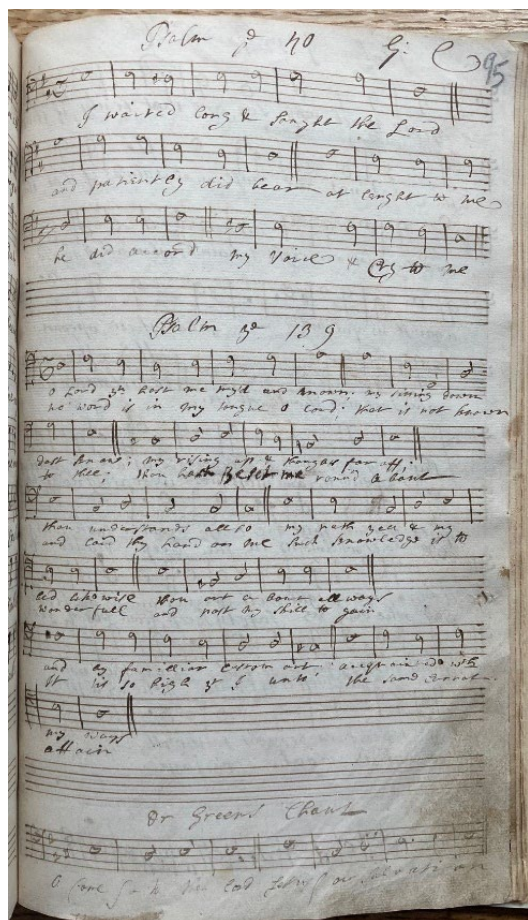 Psalm ye 40 G: 95
I waited long & sought the Lord
and patiently did bear at lenght to me
he did accord my voice & Cry to me
Psalm ye 139
O Lord yu hast me tryd and known. my sitting down
no word is in my tongue O Lord; that is not known
dost knows; my rising up & thoughts far off;
to thee; thou hast Beset me round about
thou understands allso my path yea & my
and laid thy hand on me such knowledge is to
bed likewise thou art about allways
wonderfull and past my skill to gain.
and by familiar custom art acquainted with
It is so high yt I unto the same cannot
my ways
attain
Dr Greens Chant
O Come